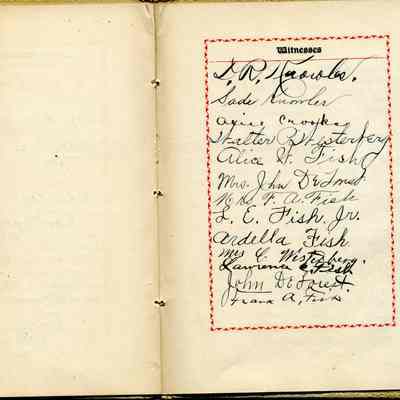 Witnesses
T. R. Knowles.
Sade Knowles
Walter Westerberg
Alice W. Fish
Mrs. John DeForest
Mrs. F. A. Fish
L. E. Fish. Jr.
Ardella Fish.
Mrs C. Westerberg.
Lawrence C. Fish
John DeForest.
Frank A. Fish